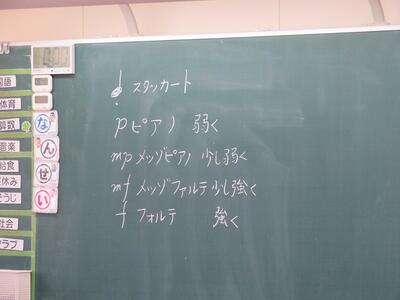 スタッカート
p ピアノ 弱く
mp メッゾピアノ 少し弱く
mf メッゾファルテ 少し強く
f フォルテ 強く
国語
体育
算数
音楽
給食
昼休み
そうじ
社会
クラブ
な
ん
せ
い